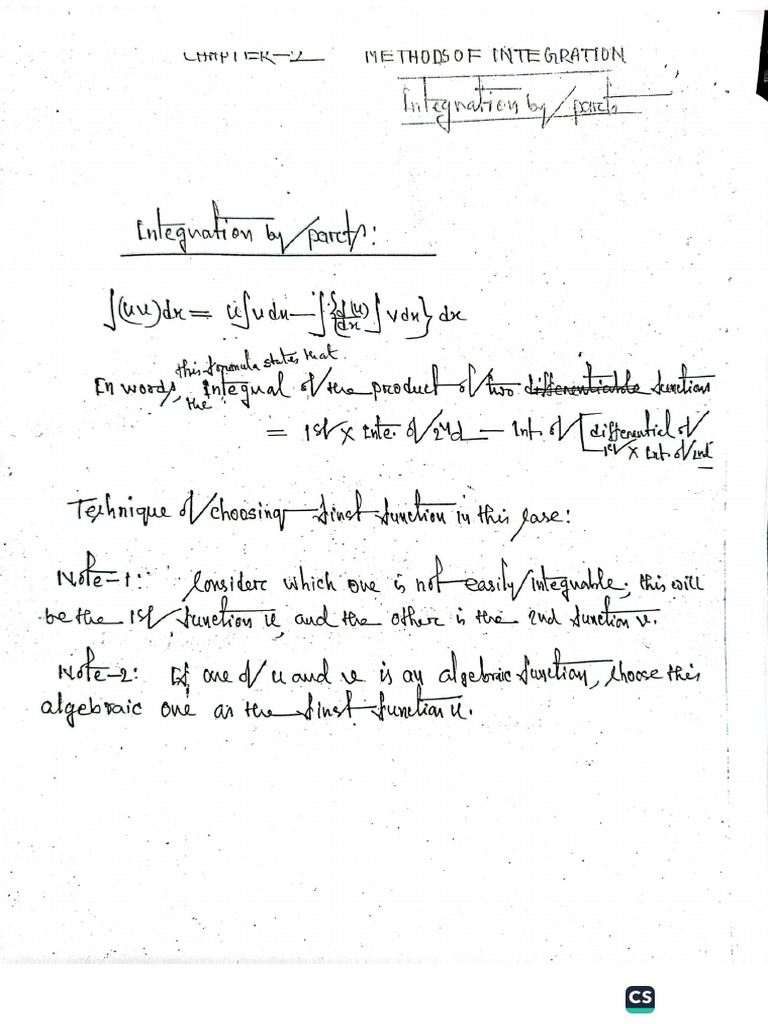 CHAPTER-2 METHODS OF INTEGRATION
Integration by parts
Integration by parts:
∫(uv)dx = u∫vdx − ∫{d(u)/dx ∫vdx}dx
this formula states that
In words, the integral of the product of two differentiable functions
= 1st × Inte. of 2nd − Int. of [differential of
1st × Int. of 2nd
Technique of choosing first function in this case:
Note-1: Consider which one is not easily integrable; this will
be the 1st function u, and the other is the 2nd function v.
Note-2: If one of u and v is an algebraic function, choose this
algebraic one as the first function u.
CS